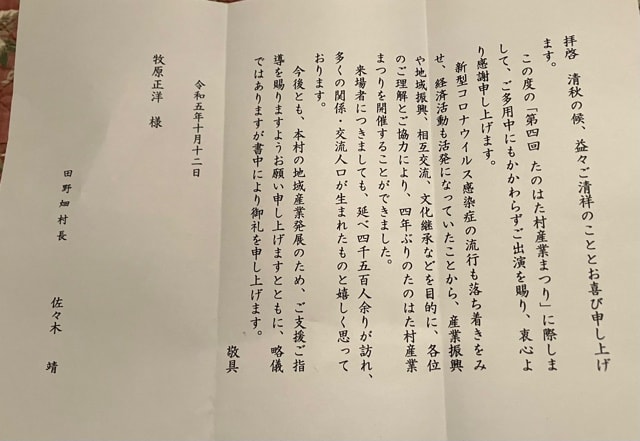 拝啓　清秋の候、益々ご清祥のこととお喜び申し上げ
ます。
この度の「第四回　たのはた村産業まつり」に際しま
して、ご多用中にもかかわらずご出演を賜り、衷心よ
り感謝申し上げます。
新型コロナウイルス感染症の流行も落ち着きをみ
せ、経済活動も活発になっていたことから、産業振興
や地域振興、相互交流、文化継承などを目的に、各位
のご理解とご協力により、四年ぶりのたのはた村産業
まつりを開催することができました。
来場者につきましても、延べ四千五百人余りが訪れ、
多くの関係・交流人口が生まれたものと嬉しく思って
おります。
今後とも、本村の地域産業発展のため、ご支援ご指
導を賜りますようお願い申し上げますとともに、略儀
ではありますが書中により御礼を申し上げます。
敬具
令和五年十月十二日
牧原正洋　様
田野畑村長　佐々木　靖